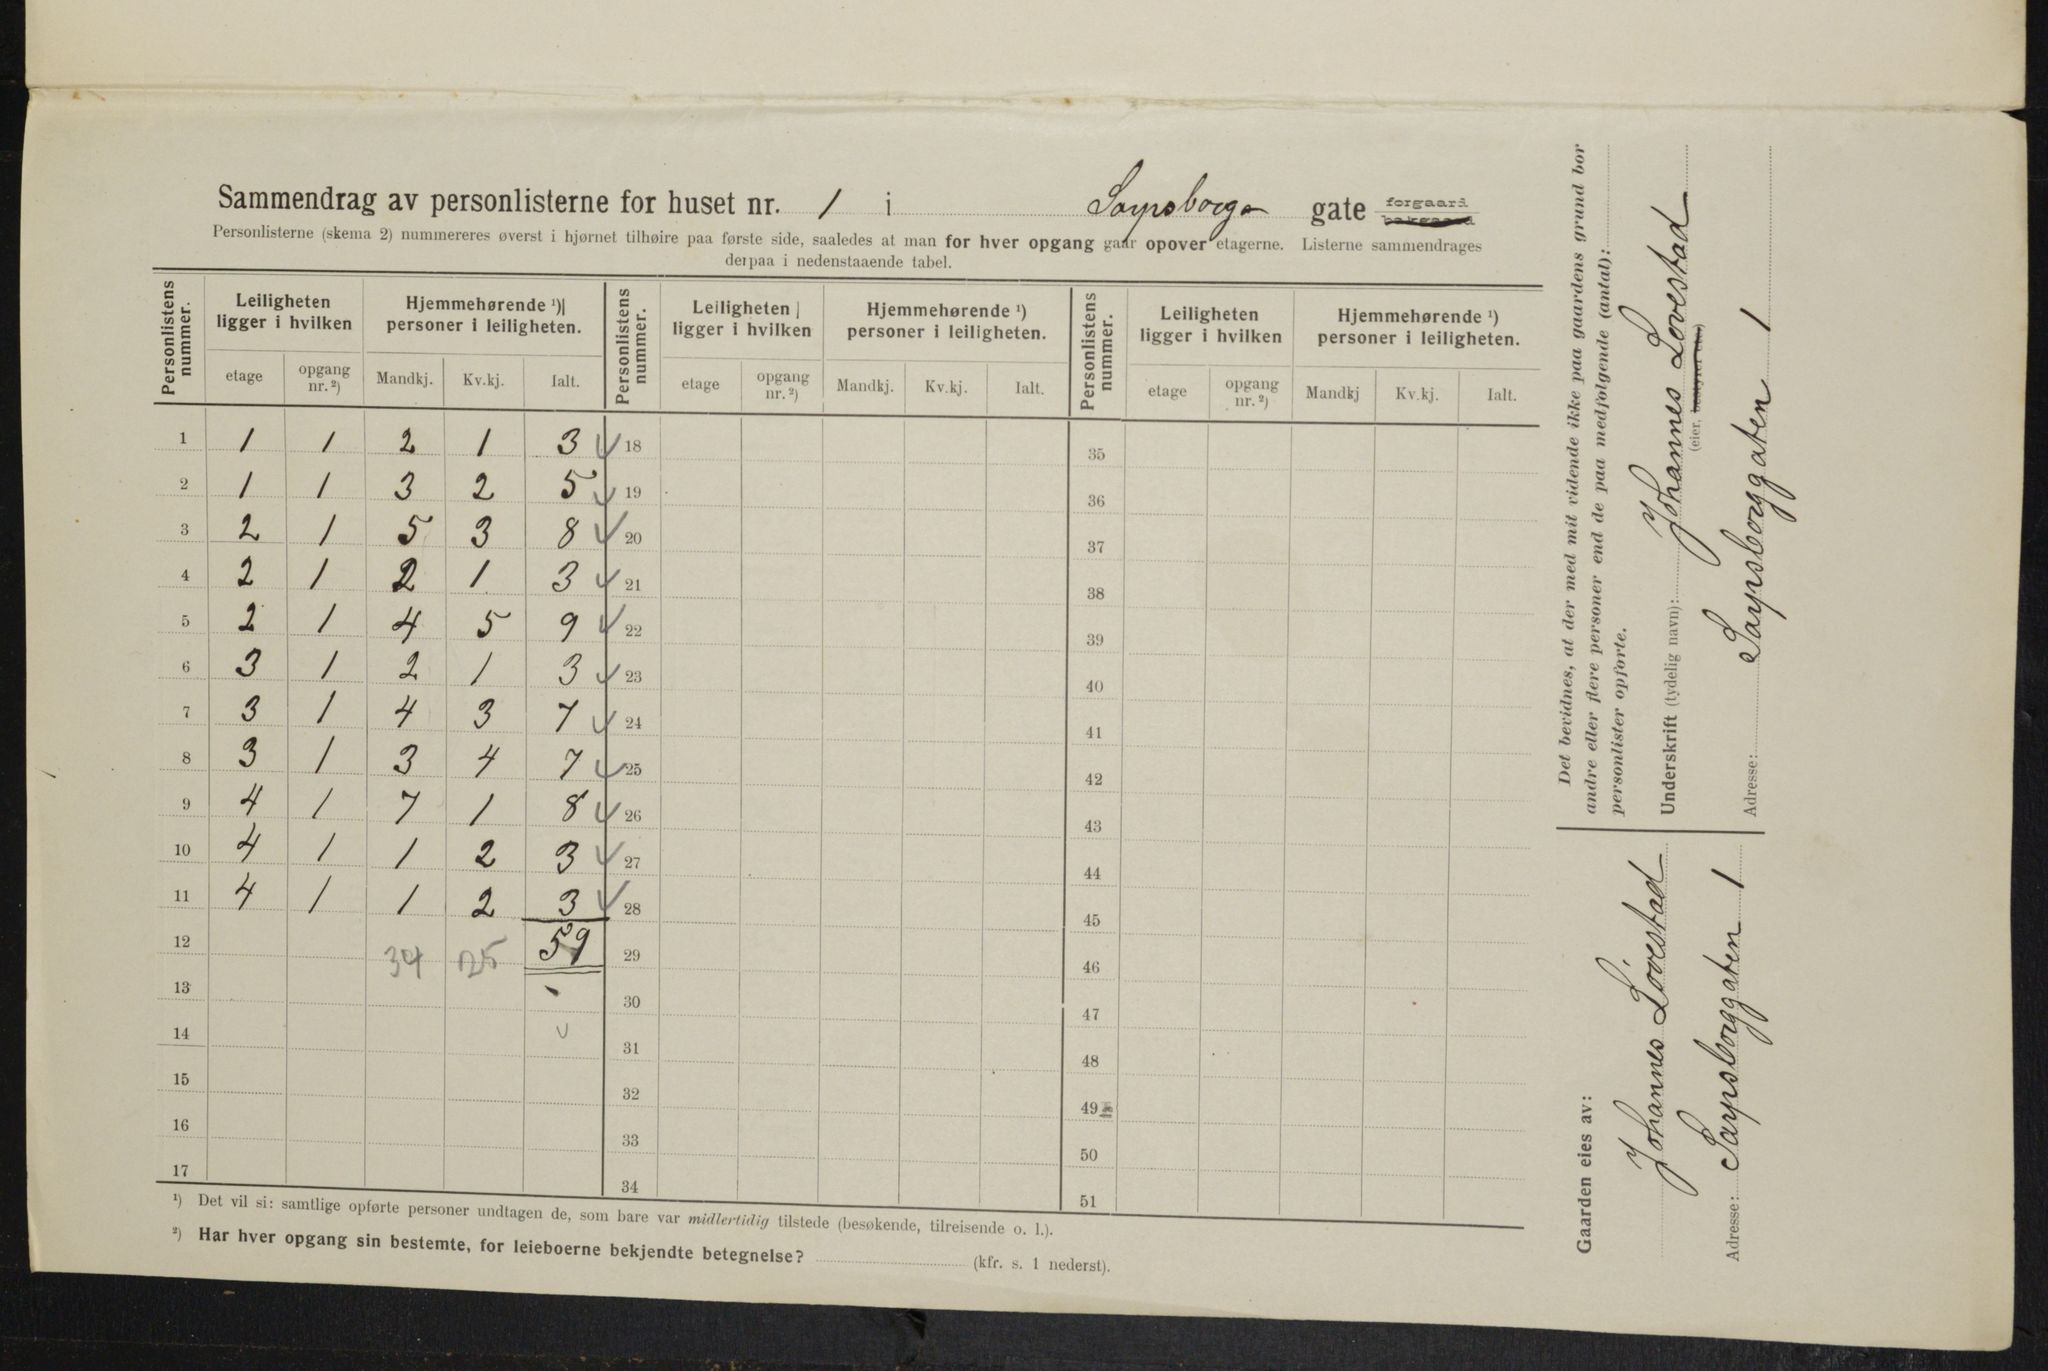 Sammendrag av personlisterne for huset nr. 1 i Sarpsborg gate forgaard bakgaard
Personlisterne (skema 2) nummereres øverst i hjørnet tilhøire paa første side, saaledes at man for hver opgang gaar opover etagerne. Listerne sammendrages
derpaa i nedenstaaende tabel.
Personlistens nummer. Leiligheten ligger i hvilken Hjemmehørende ¹) personer i leiligheten. Personlistens nummer. Leiligheten ligger i hvilken Hjemmehørende ¹) personer i leiligheten. Personlistens nummer. Leiligheten ligger i hvilken Hjemmehørende ¹) personer i leiligheten.
etage opgang nr. ²) Mandkj. Kv.kj. Ialt. etage opgang nr. ²) Mandkj. Kv.kj. Ialt. etage opgang nr. ²) Mandkj Kv.kj. Ialt.
1 1 1 2 1 3 18 35
2 1 1 3 2 5 19 36
3 2 1 5 3 8 20 37
4 2 1 2 1 3 21 38
5 2 1 4 5 9 22 39
6 3 1 2 1 3 23 40
7 3 1 4 3 7 24 41
8 3 1 3 4 7 25 42
9 4 1 7 1 8 26 43
10 4 1 1 2 3 27 44
11 4 1 1 2 3 28 45
12 34 25 59 29 46
13 30 47
14 31 48
15 32 49
16 33 50
17 34 51
¹) Det vil si: samtlige opførte personer undtagen de, som bare var midlertidig tilstede (besøkende, tilreisende o. l.).
²) Har hver opgang sin bestemte, for leieboerne bekjendte betegnelse? (kfr. s. 1 nederst).
Det bevidnes, at der med mit vidende ikke paa gaardens grund bor
andre eller flere personer end de paa medfølgende (antal):
personlister opførte.
Underskrift (tydelig navn): Johannes Lovestad
(eier, bestyrer etc.)
Adresse: Sarpsborggaten 1
Gaarden eies av:
Johannes Lövestad
Adresse: Sarpsborggaten 1